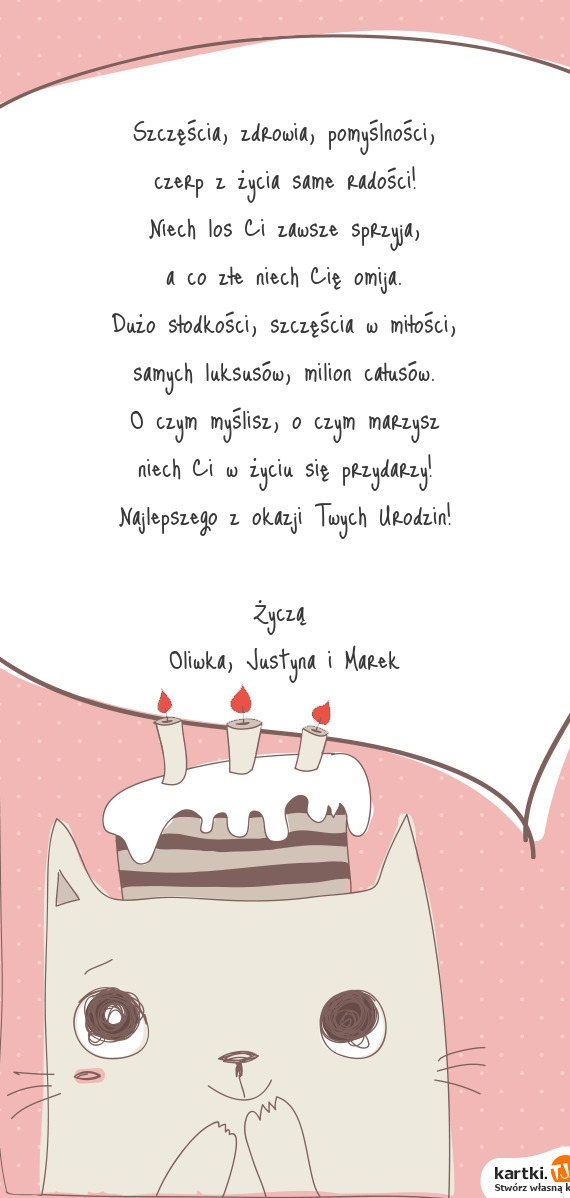 Szczęścia, zdrowia, pomyślności,
czerp z życia same radości!
Niech los Ci zawsze sprzyja,
a co złe niech Cię omija.
Dużo słodkości, szczęścia w miłości,
samych luksusów, milion całusów.
O czym myślisz, o czym marzysz
niech Ci w życiu się przydarzy!
Najlepszego z okazji Twych Urodzin!
Życzą
Oliwka, Justyna i Marek
kartki.TJ
Stwórz własną k